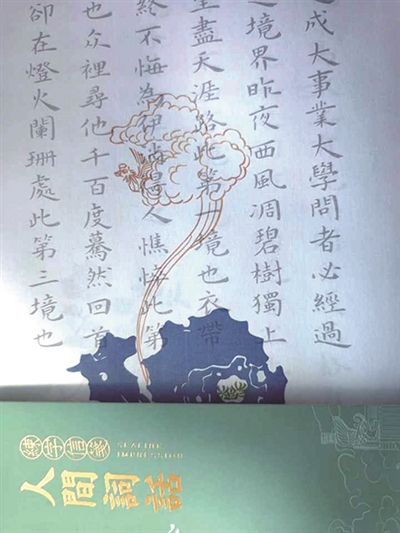 成大事業大學問者必經過
之境界昨夜西風凋碧樹獨上
望盡天涯路此第一境也衣帶
終不悔為伊消得人憔悴此第
也众裡尋他千百度驀然回首
卻在燈火闌珊處此第三境也
練字信箋
IMPRESSION
人間詞話